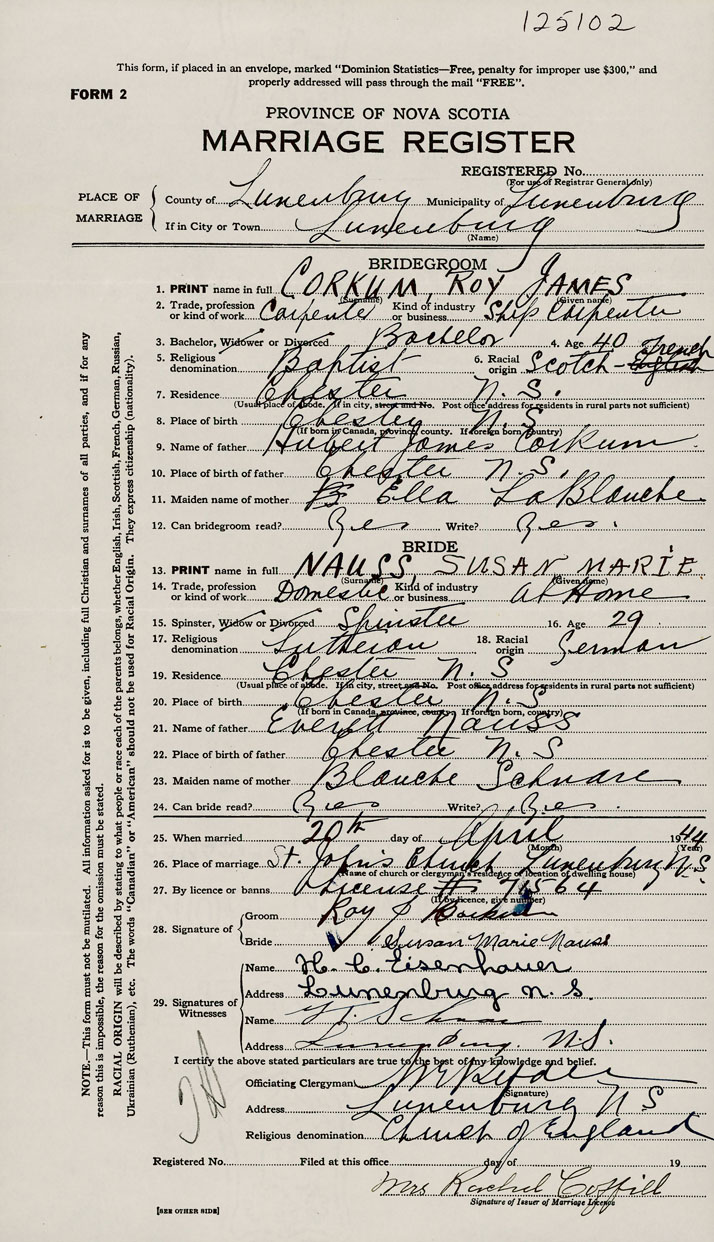 125102
This form, if placed in an envelope, marked "Dominion Statistics—Free, penalty for improper use $300," and
properly addressed will pass through the mail "FREE".
FORM 2
PROVINCE OF NOVA SCOTIA
MARRIAGE REGISTER
REGISTERED No.
(For use of Registrar General only)
PLACE OF MARRIAGE
County of Lunenburg Municipality of Lunenburg
If in City or Town Lunenburg
(Name)
BRIDEGROOM
1. PRINT name in full CORKUM, ROY JAMES
(Surname) (Given name)
2. Trade, profession or kind of work Carpenter Kind of industry or business Ship Carpenter
3. Bachelor, Widower or Divorced Bachelor 4. Age 40
5. Religious denomination Baptist 6. Racial origin Scotch - French English
7. Residence Chester N.S.
(Usual place of abode. If in city, street and No. Post office address for residents in rural parts not sufficient)
8. Place of birth Chester N.S.
(If born in Canada, province, county. If foreign born, country)
9. Name of father Hubert James Corkum
10. Place of birth of father Chester N.S.
11. Maiden name of mother Ella LaBlanche
12. Can bridegroom read? Yes Write? Yes.
BRIDE
13. PRINT name in full NAUSS, SUSAN MARIE
(Surname) (Given name)
14. Trade, profession or kind of work Domestic Kind of industry or business at Home
15. Spinster, Widow or Divorced Spinster 16. Age 29
17. Religious denomination Lutheran 18. Racial origin German
19. Residence Chester N.S
(Usual place of abode. If in city, street and No. Post office address for residents in rural parts not sufficient)
20. Place of birth Chester N.S
(If born in Canada, province, county. If foreign born, country)
21. Name of father Everett Nauss
22. Place of birth of father Chester N.S
23. Maiden name of mother Blanche Schnare
24. Can bride read? Yes Write? Yes.
25. When married 20th day of April 1944
(Month) (Year)
26. Place of marriage St. John's Church Lunenburg N.S.
(Name of church or clergyman's residence or location of dwelling house)
27. By licence or banns License # 71564
(If by licence, give number)
28. Signature of
Groom Roy J Corkum
Bride Susan Marie Nauss
29. Signatures of Witnesses
Name H. C. Eisenhauer
Address Lunenburg N.S.
Name
Address Lunenburg. N.S.
I certify the above stated particulars are true to the best of my knowledge and belief.
Officiating Clergyman
(Signature)
Address Lunenburg N S
Religious denomination Church of England
Registered No. Filed at this office day of 19
Mrs Rachel Coffill
Signature of Issuer of Marriage Licence
[SEE OTHER SIDE]
NOTE.—This form must not be mutilated. All information asked for is to be given, including full Christian and surnames of all parties, and if for any
reason this is impossible, the reason for the omission must be stated.
RACIAL ORIGIN will be described by stating to what people or race each of the parents belongs, whether English, Irish, Scottish, French, German, Russian,
Ukrainian (Ruthenian), etc. The words "Canadian" or "American" should not be used for Racial Origin. They express citizenship (nationality).